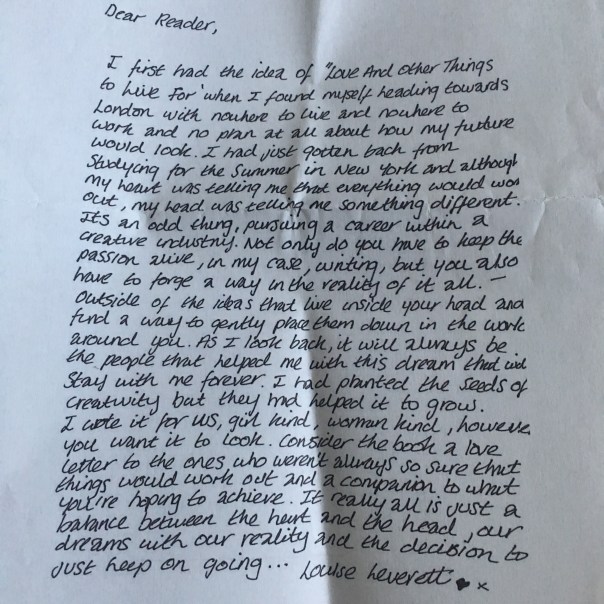 Dear Reader,
I first had the idea of "Love And Other Things
to Live For' when I found myself heading towards
London with nowhere to live and nowhere to
work and no plan at all about how my future
would look. I had just gotten back from
studying for the Summer in New York and although
my heart was telling me that everything would wor
out, my head was telling me something different.
Its an odd thing, pursuing a career within a
creative industry. Not only do you have to keep the
passion alive, in my case, writing, but you also
have to forge a way in the reality of it all. —
Outside of the ideas that live inside your head and
find a way to gently place them down in the work
around you. As I look back, it will always be
the people that helped me with this dream that
Stay with me forever. I had planted the seeds of
creativity but they had helped it to grow.
I wrote it for us, girl kind, woman kind, however
you want it to look. Consider the book a love
letter to the ones who weren't always so sure that
things would work out and a companion to what
you're hoping to achieve. It really all is just a
balance between the heart and the head, our
dreams with our reality and the decision to
just keep on going... Louise Leverett ♥ x